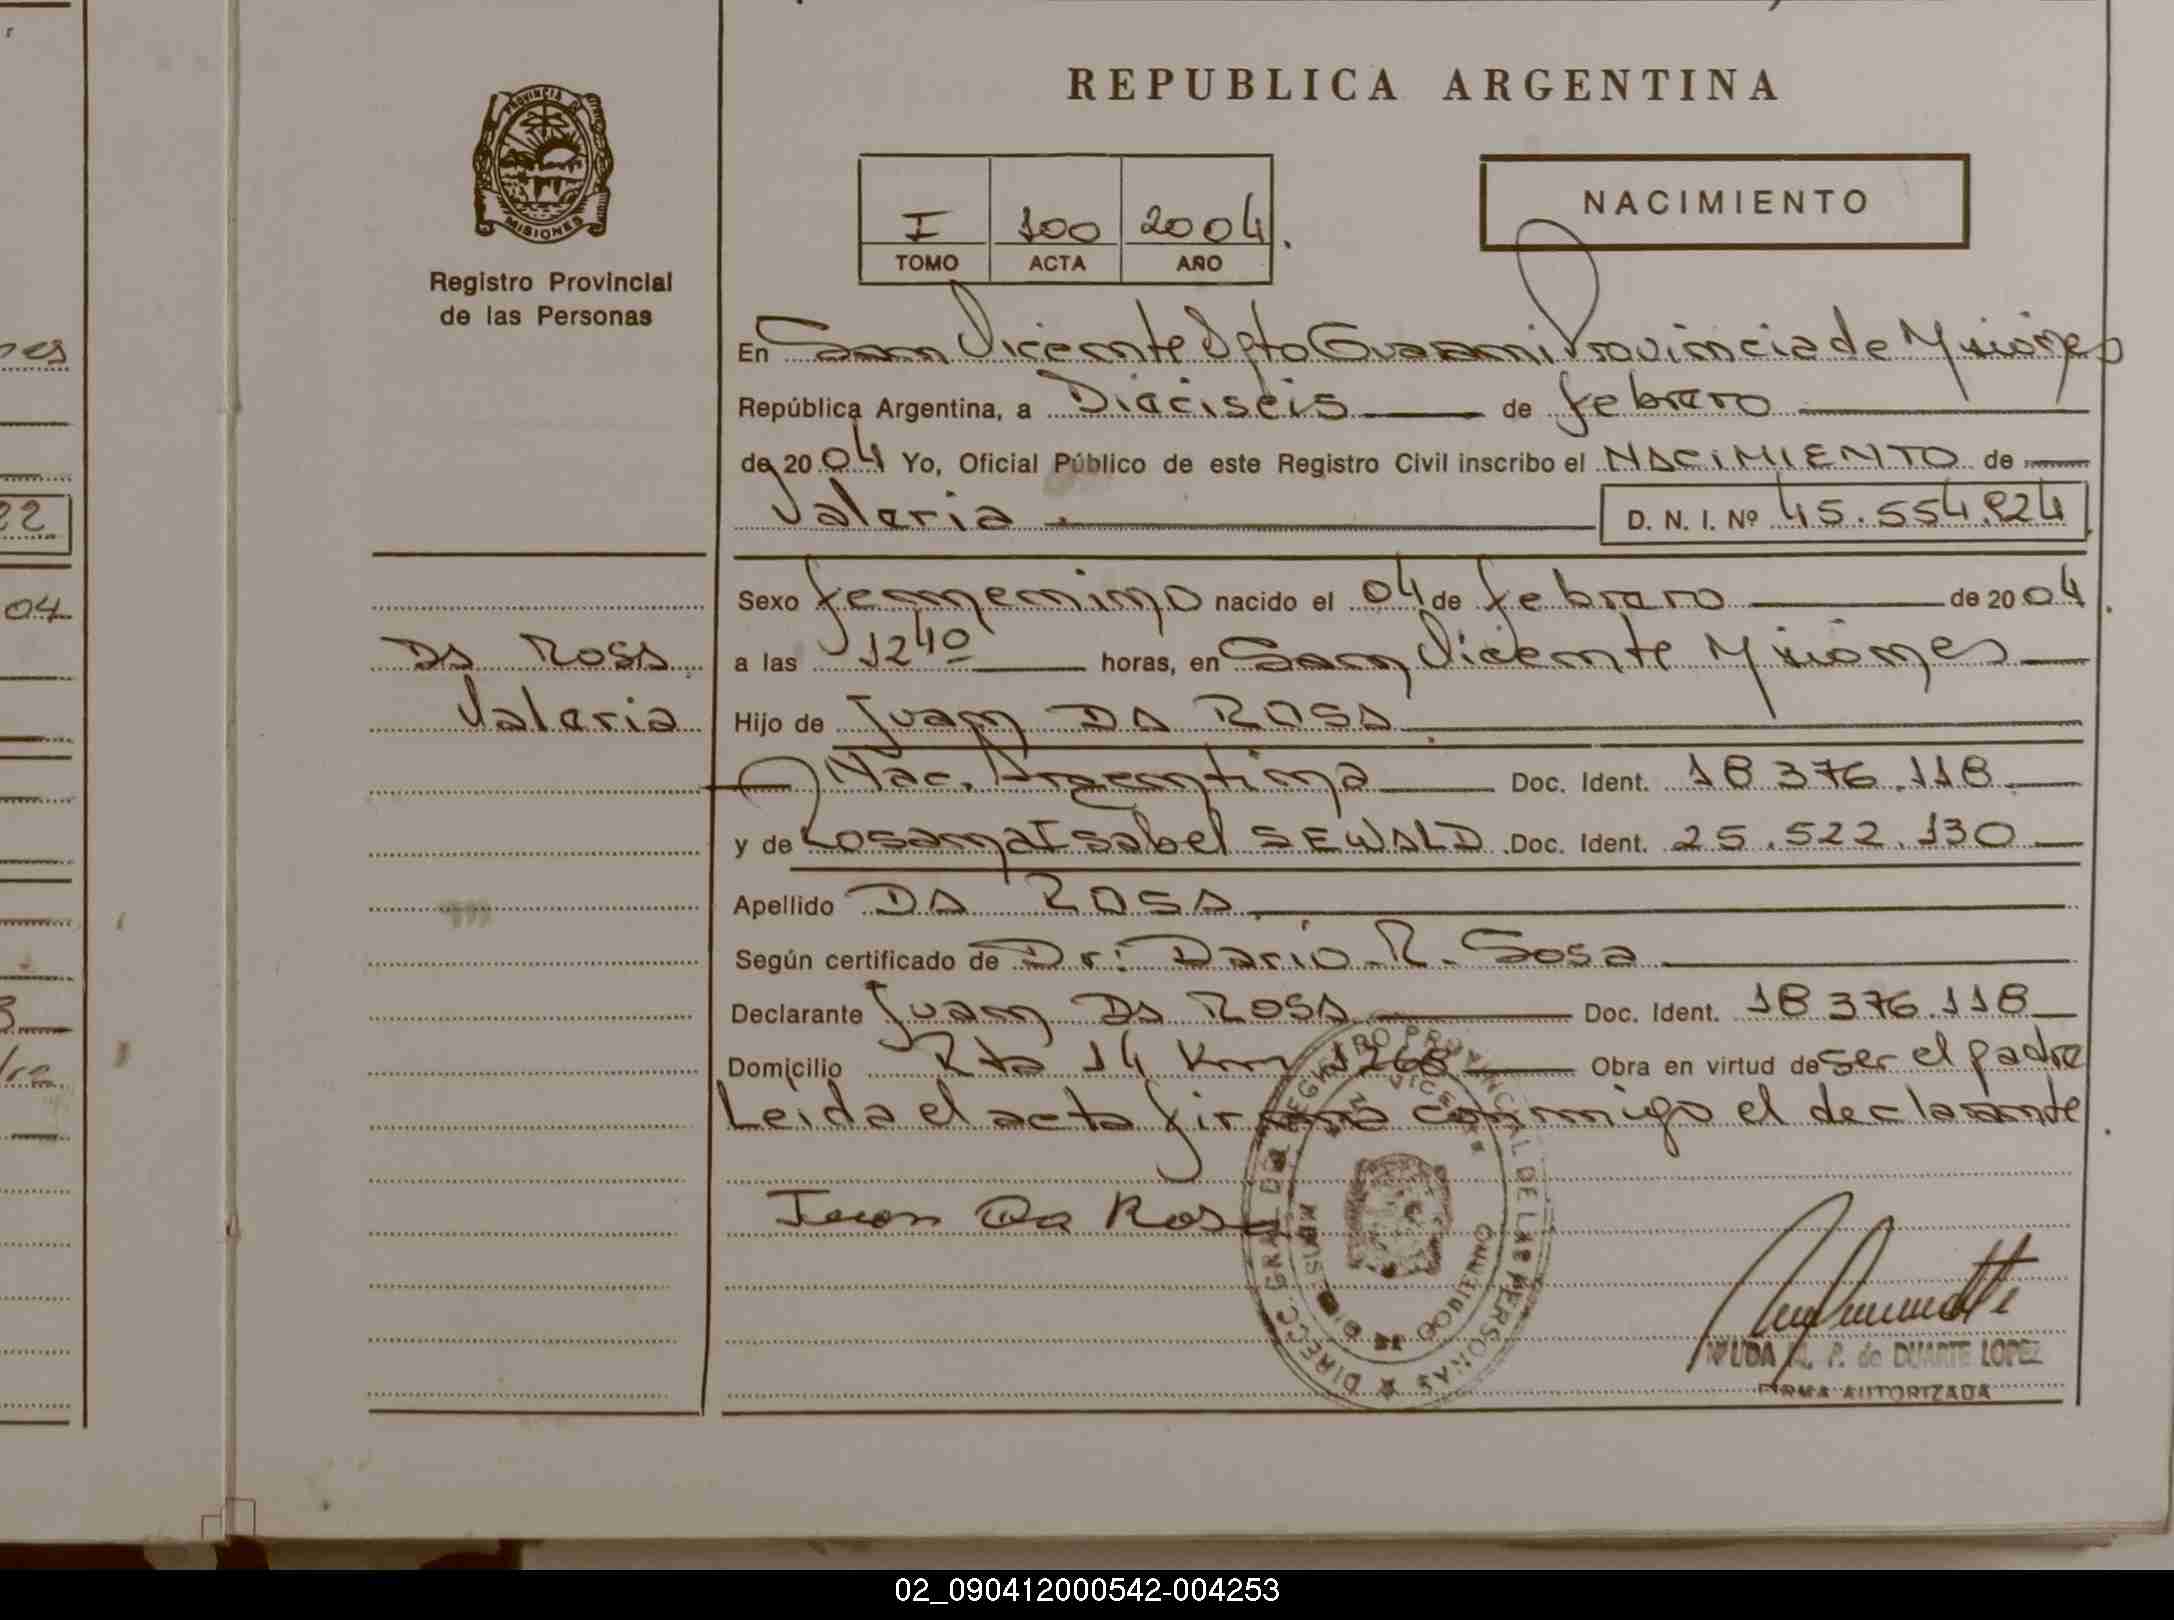 REPUBLICA ARGENTINA
PROVINCIA DE
MISIONES
Registro Provincial
de las Personas
I 100 2004.
TOMO ACTA AÑO
NACIMIENTO
En San Vicente Dpto Guarani Provincia de Misiones
República Argentina, a Dieciseis de febrero
de 20 04 Yo, Oficial Público de este Registro Civil inscribo el NACIMIENTO de
Valeria D. N. I. Nº 45.554.824
Sexo femenino nacido el 04 de febrero de 20 04.
a las 12 40 horas, en San Vicente Misiones
Da Rosa
Valeria
Hijo de Juan DA ROSA
Nac. Argentina Doc. Ident. 18 376.118
y de Rosana Isabel SEWALD Doc. Ident. 25.522.130
Apellido DA ROSA
Según certificado de Dr: Dario R. Sosa
Declarante Juan Da ROSA Doc. Ident. 18 376.118
Domicilio Rta 14 Km 1268 Obra en virtud de ser el padre
Leida el acta firma conmigo el declarante
Juan Da Rosa
DIRECC. GRAL. DEL REGISTRO PROVINCIAL DE LAS PERSONAS
MISIONES
P. de DUARTE LOPEZ
FIRMA AUTORIZADA
22
04
02_090412000542-004253